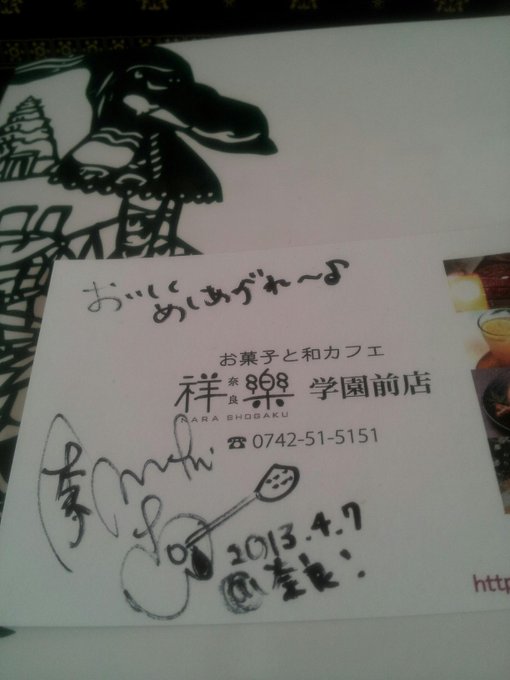 おいしく
めしあがれ〜♪
お菓子と和カフェ
祥 奈良 樂 学園前店
NARA SHOGAKU
☎ 0742-51-5151
2013.4.7
@奈良!
http